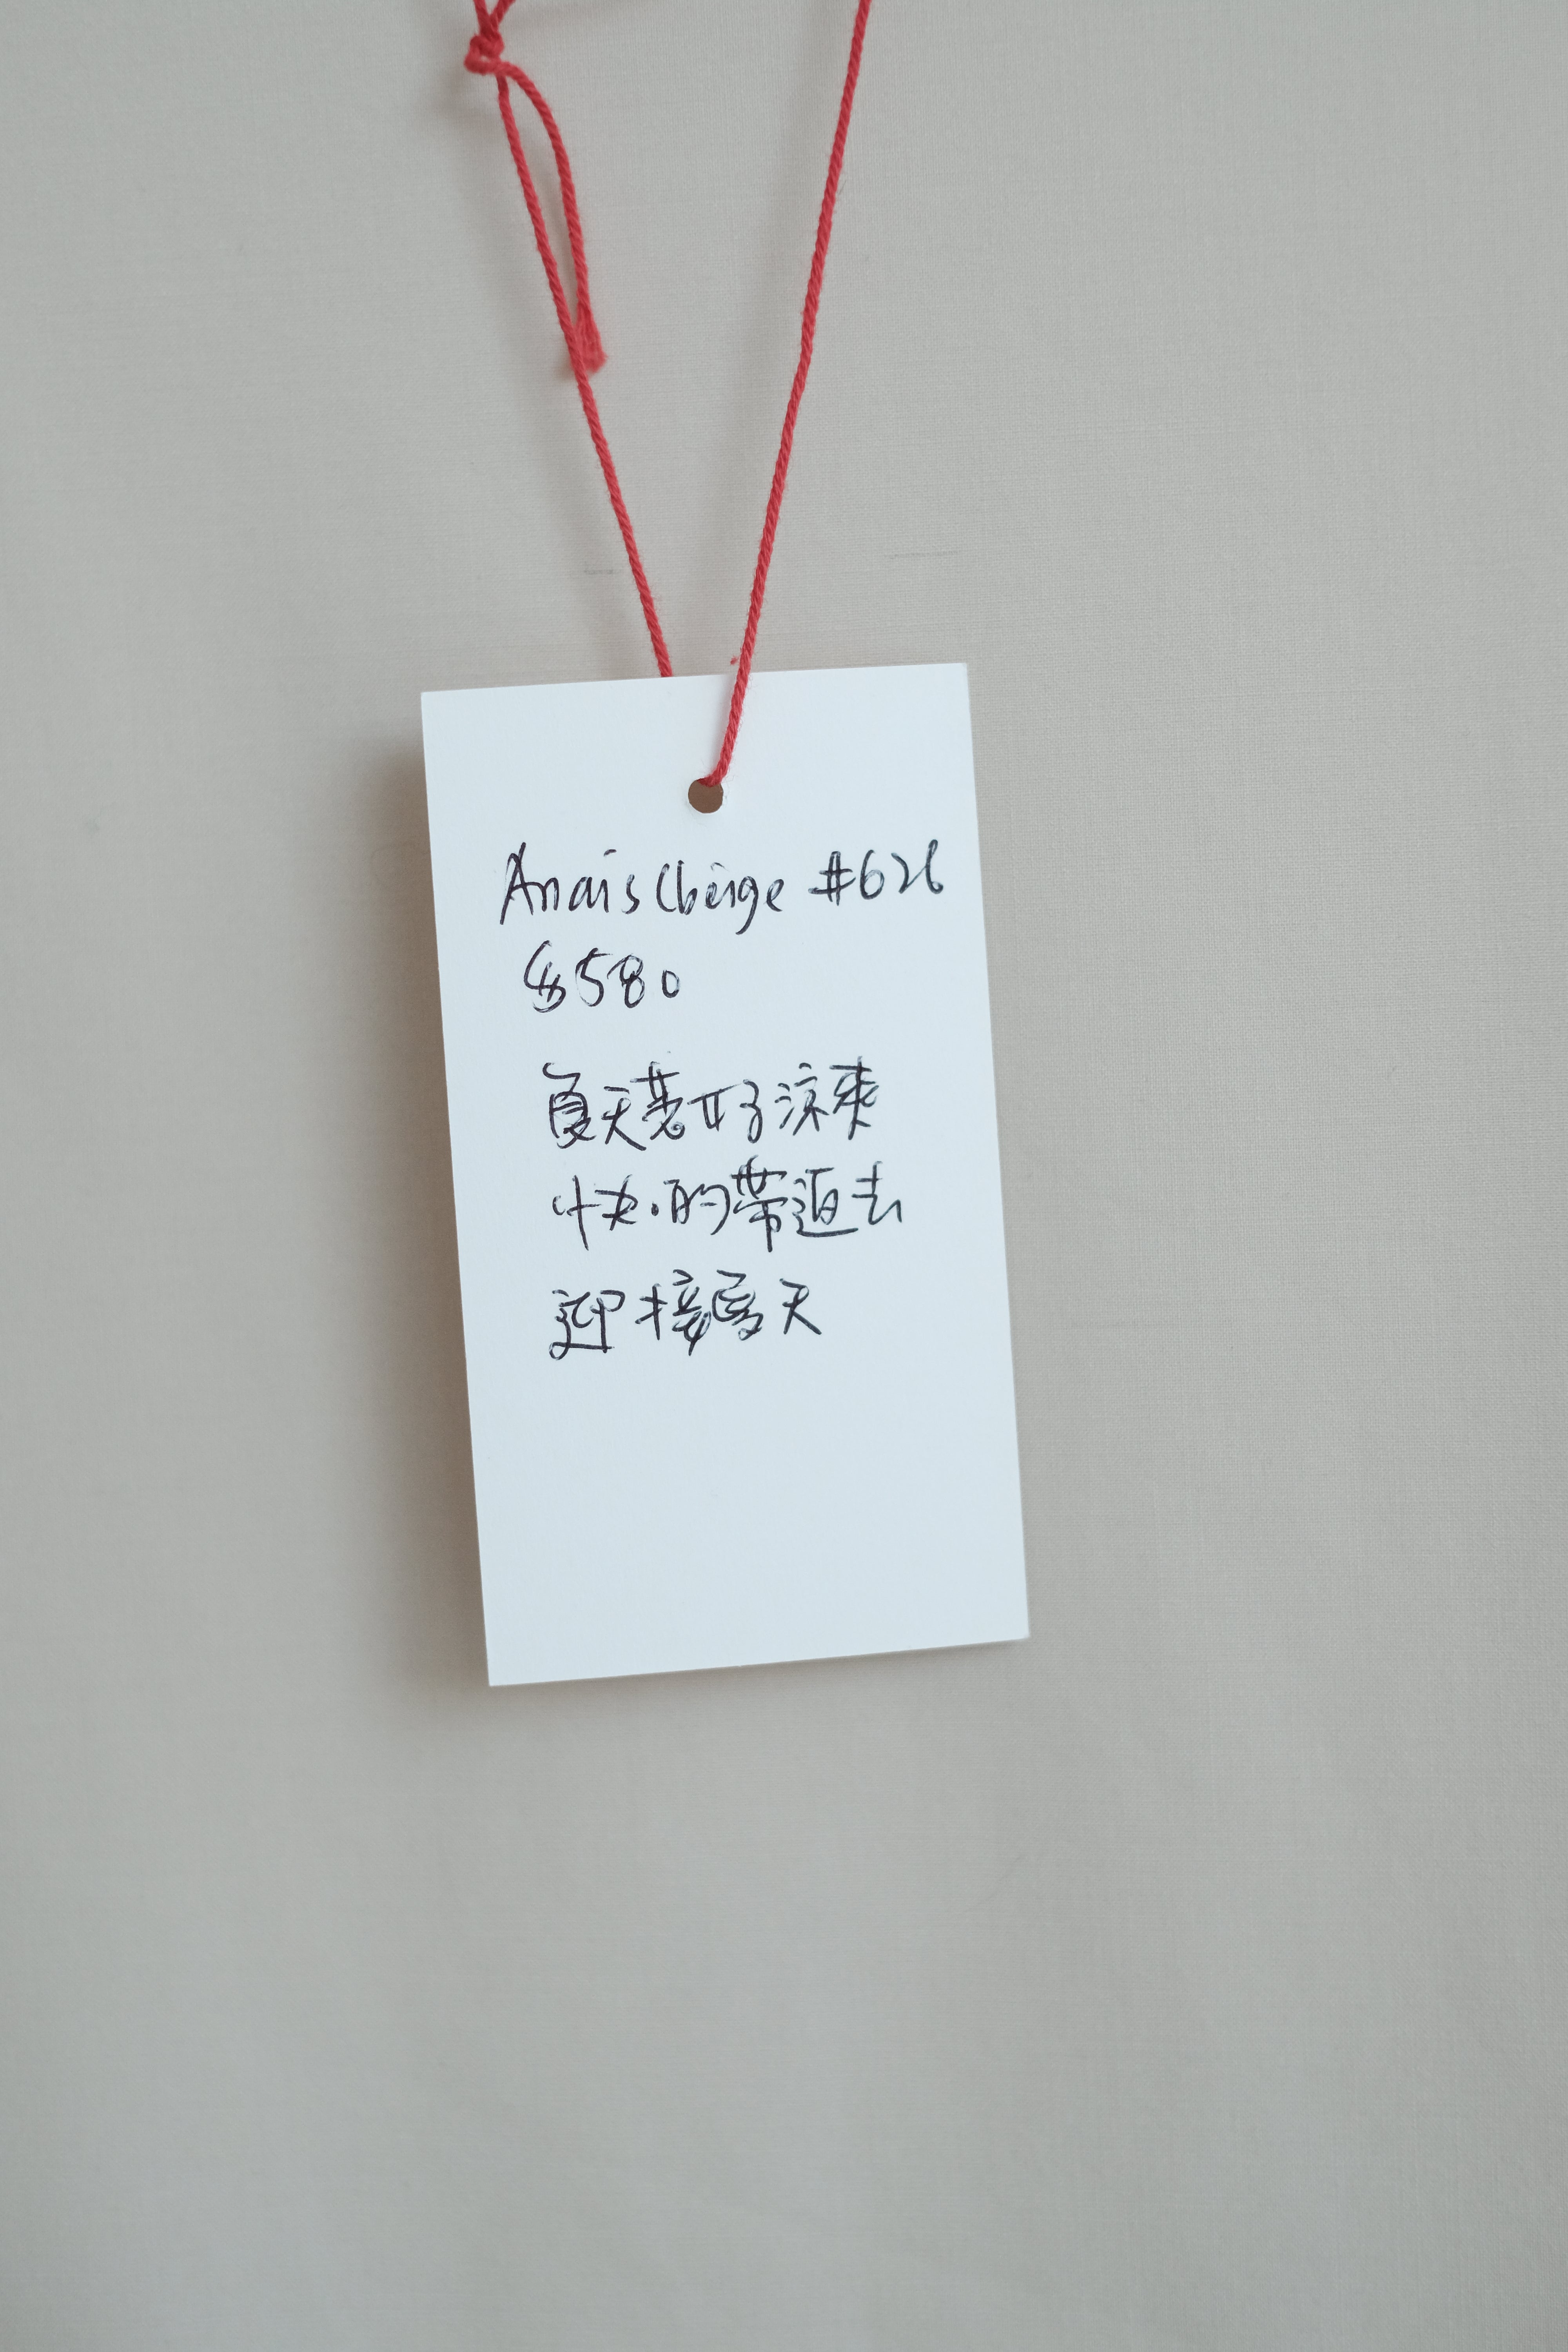 Anais Cbeige #626
$580
夏天著好涼爽
快的帶返去
迎接夏天